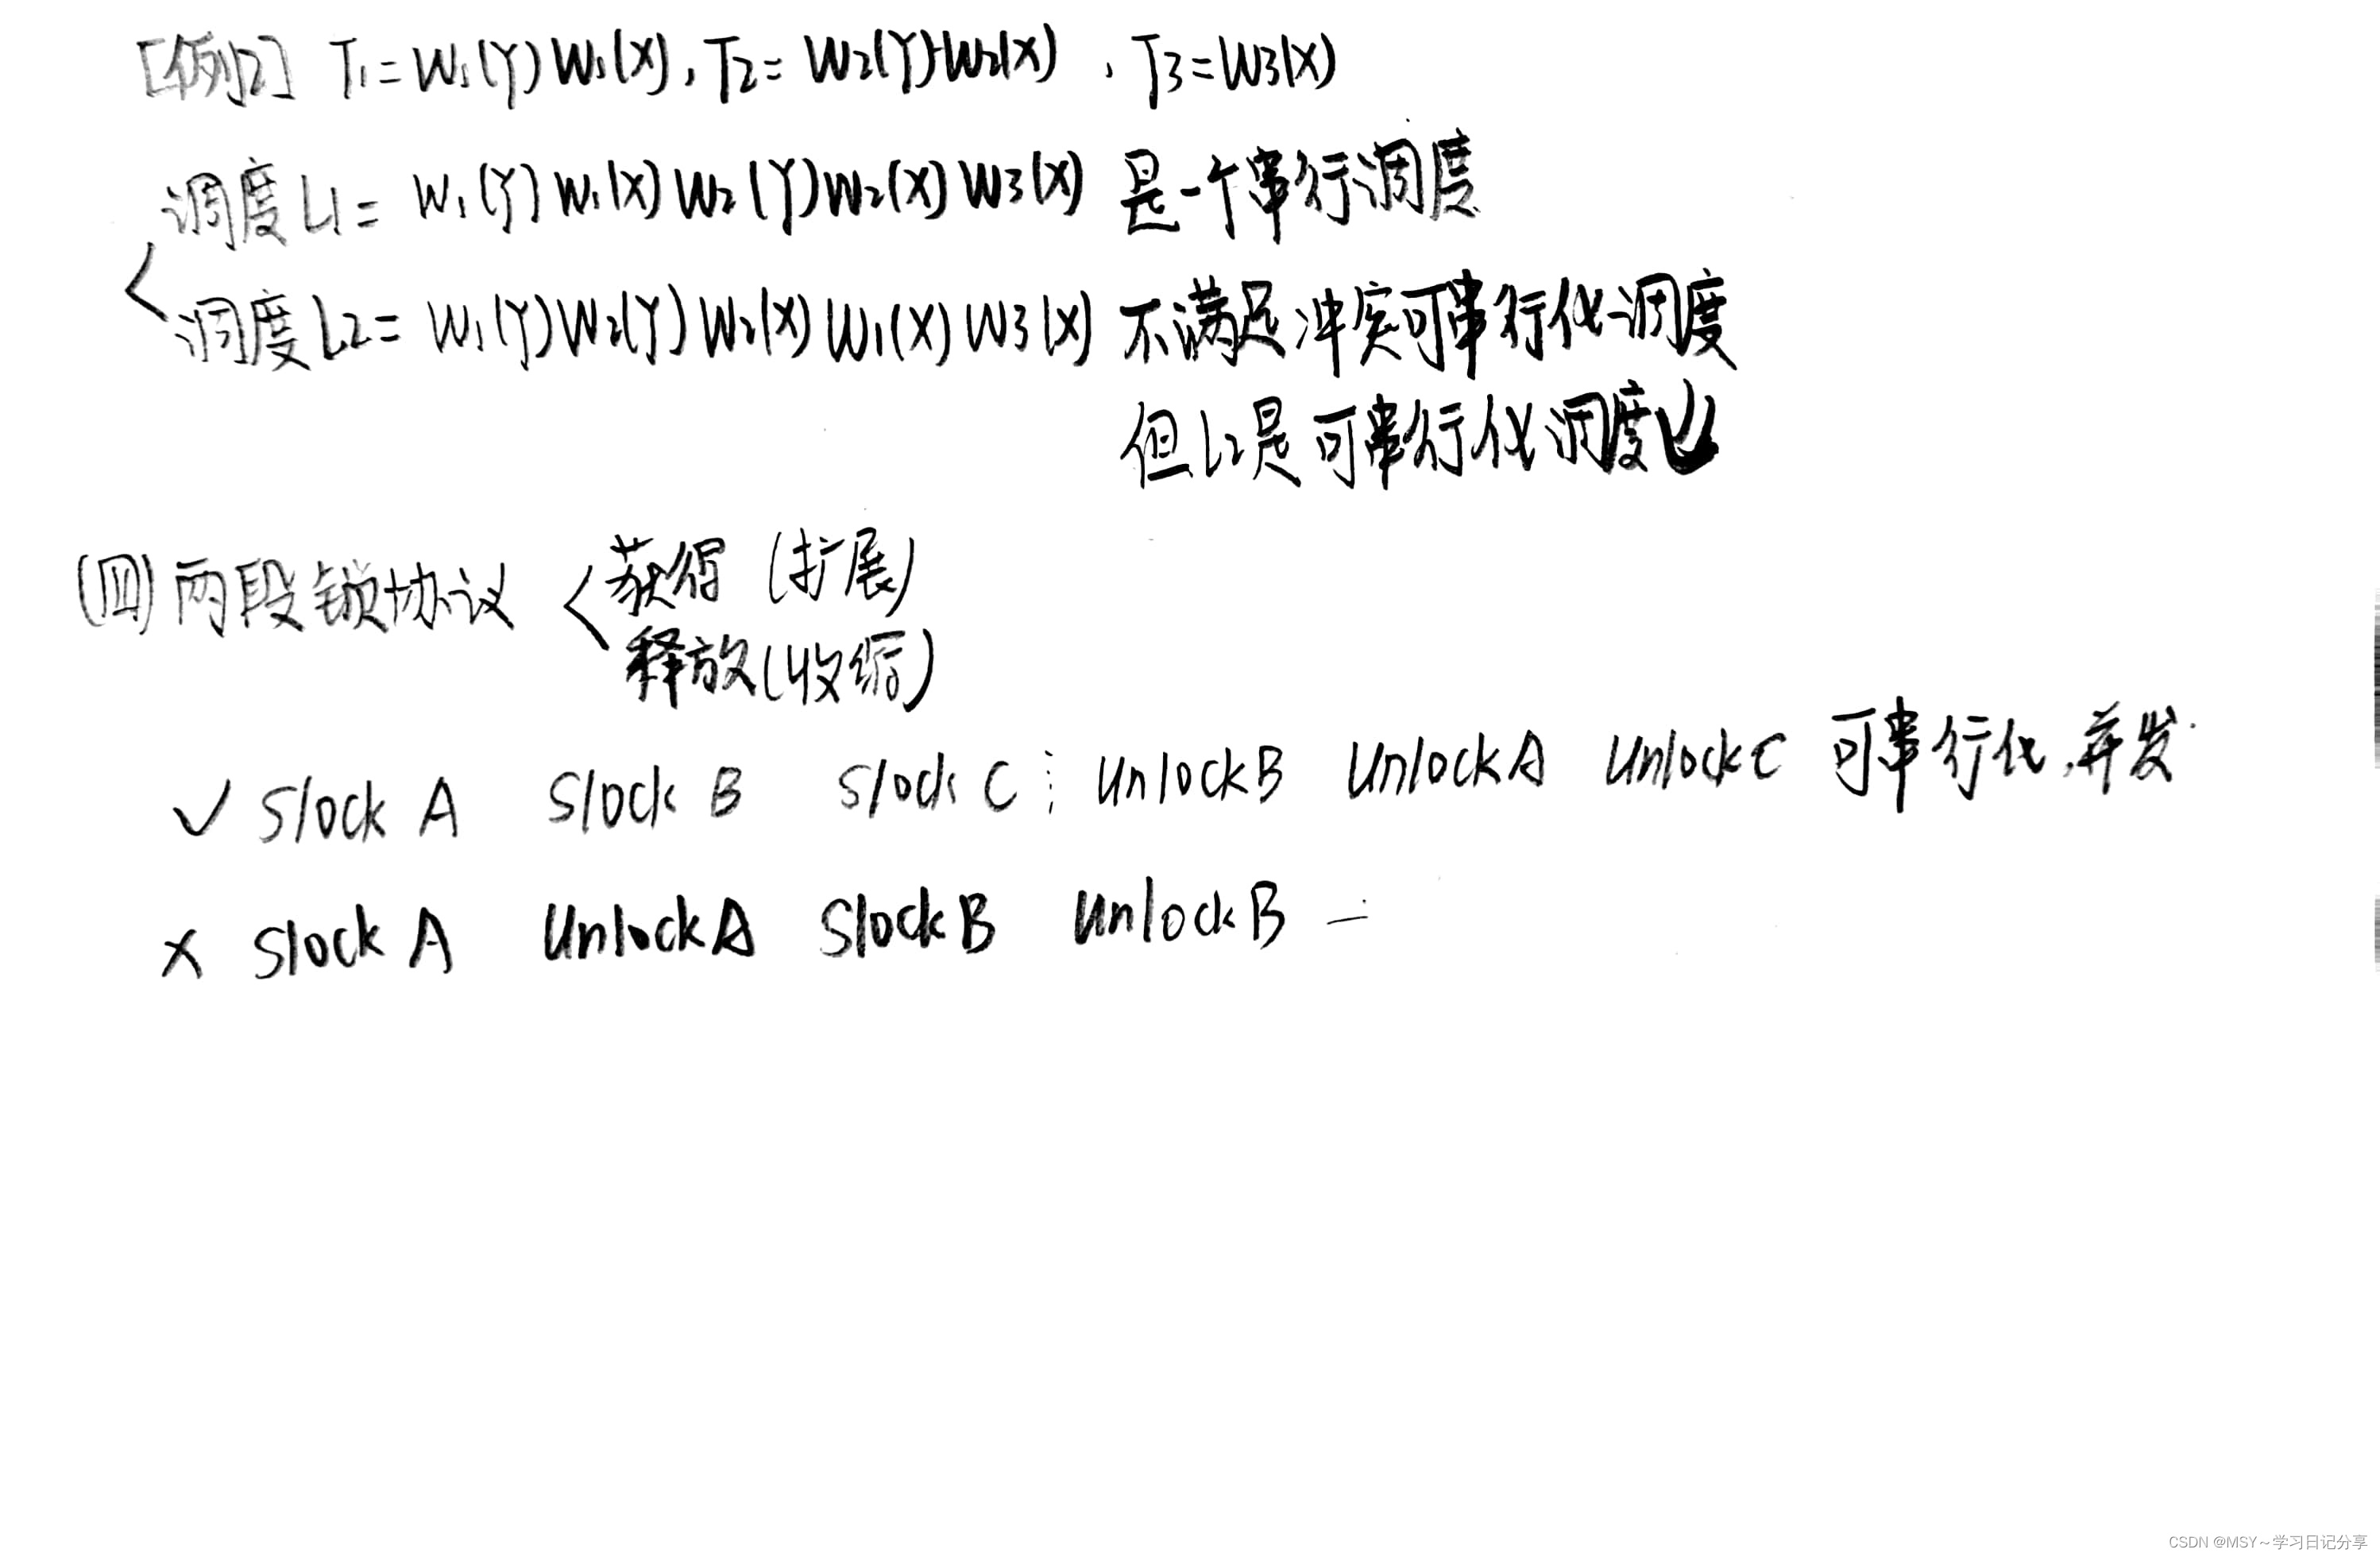 [例2] T1=W1(Y)W1(X), T2=W2(Y)W2(X), T3=W3(X)
调度L1=W1(Y)W1(X)W2(Y)W2(X)W3(X) 是一个串行调度
调度L2=W1(Y)W2(Y)W2(X)W1(X)W3(X) 不满足冲突可串行化调度
但L2是可串行化调度
(四)两段锁协议
获得 (扩展)
释放(收缩)
✓ Slock A Slock B Slock C ⋮ Unlock B Unlock A Unlock C 可串行化,并发
× Slock A Unlock A Slock B Unlock B
CSDN @MSY～学习日记分享